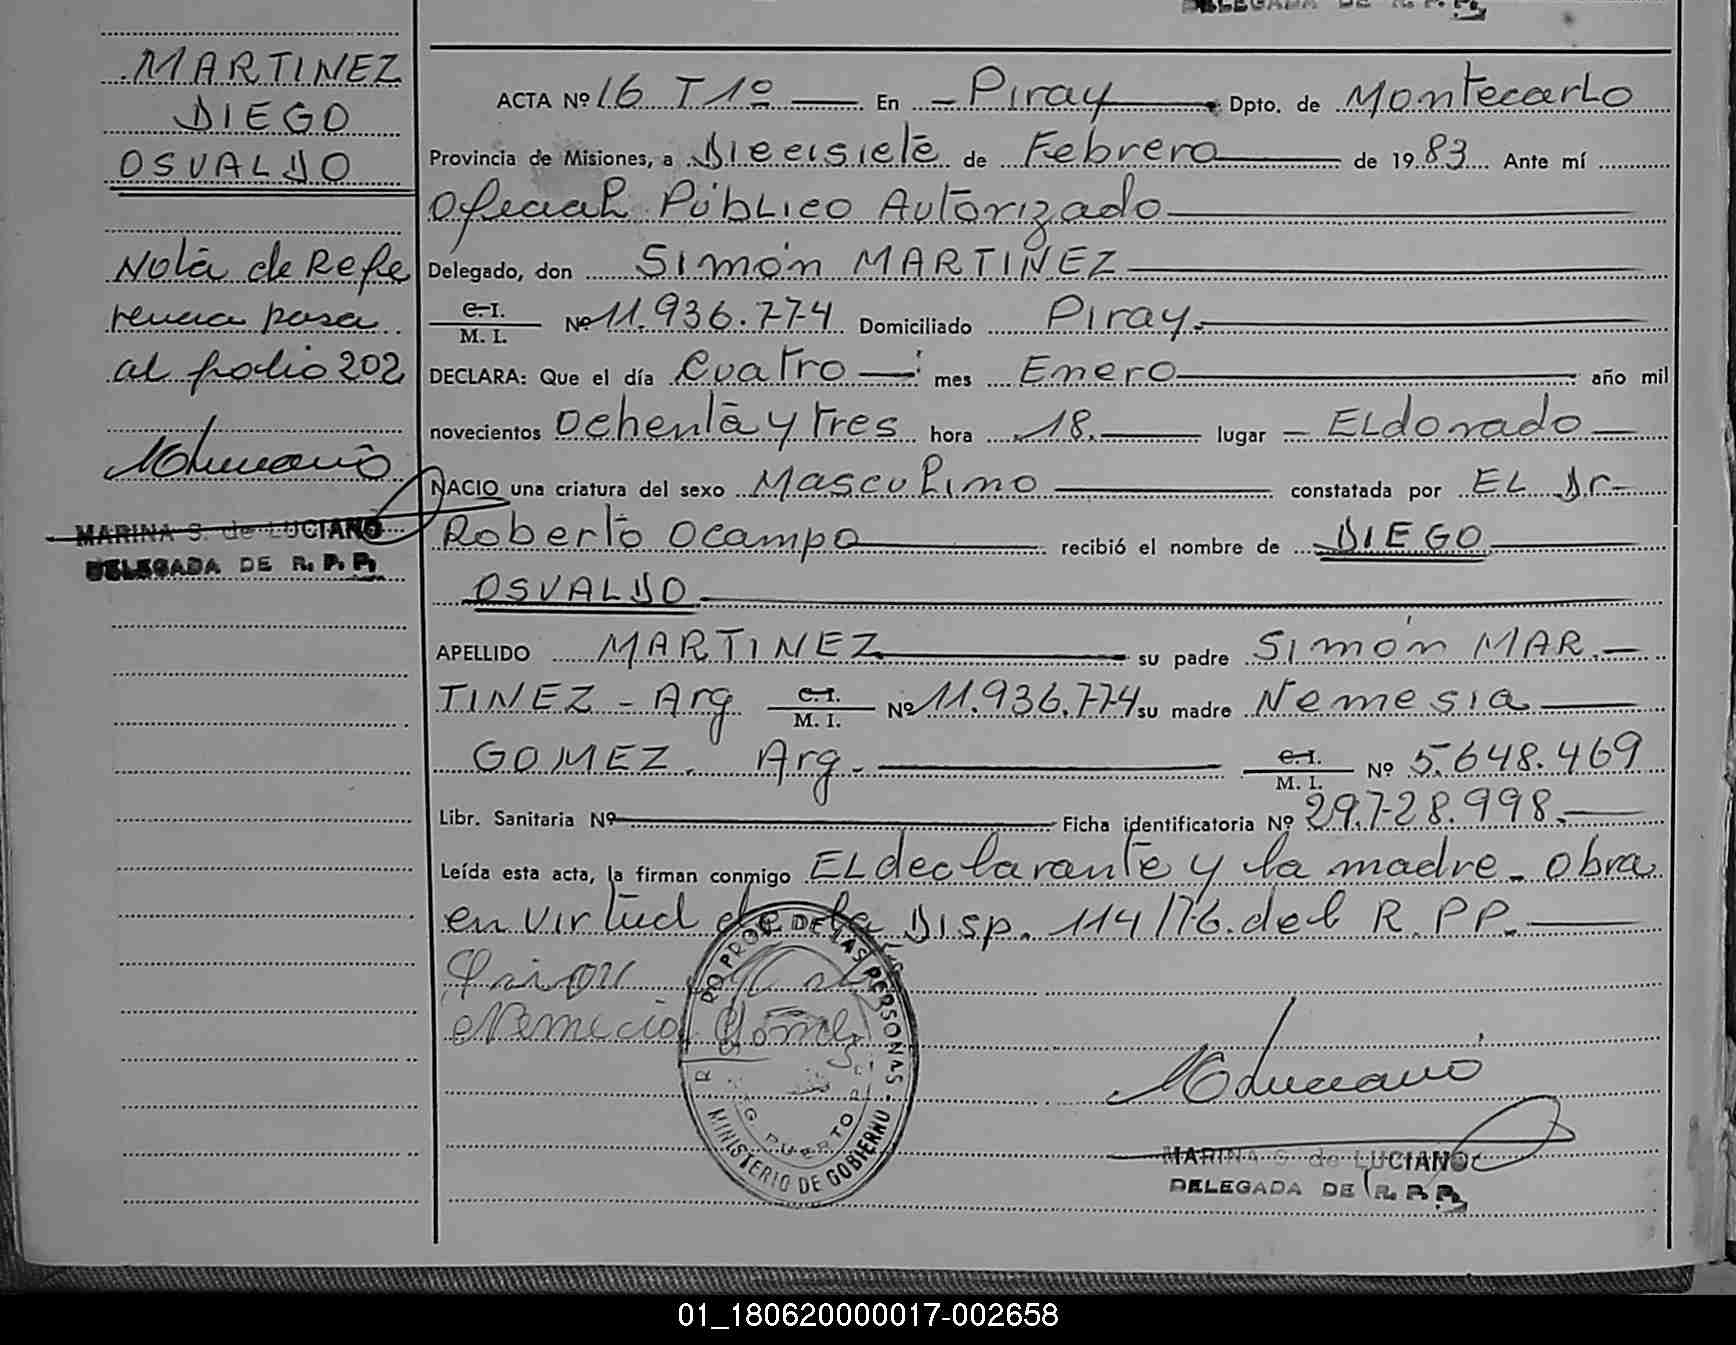 DELEGADA DE R. P. P.
MARTINEZ
DIEGO
OSVALDO
Nota de Refe
rencia pasa
al folio 202
MARINA S. de LUCIANO
DELEGADA DE R. P. P.
ACTA Nº 16 T 1º En Piray Dpto. de Montecarlo
Provincia de Misiones, a Dieeisiete de Febrero de 1983 Ante mí
Oficial Público Autorizado
Delegado, don Simón MARTINEZ
C. I. / M. I. Nº 11.936.774 Domiciliado Piray.
DECLARA: Que el día Cuatro mes Enero año mil
novecientos Ochenta y tres hora 18. lugar ELdorado
NACIO una criatura del sexo Masculino constatada por EL Dr.
Roberto Ocampo recibió el nombre de DIEGO
OSVALDO
APELLIDO MARTINEZ su padre Simón MAR.-
TINEZ - Arg C. I. / M. I. Nº 11.936.774 su madre Nemesia
GOMEZ. Arg. C. I. / M. I. Nº 5.648.469
Libr. Sanitaria Nº Ficha identificatoria Nº 29.728.998.
Leída esta acta, la firman conmigo EL declarante y la madre. obra
en virtud de la Disp. 114/76. del R. P P.
Nemecia Gomez
RO PROV. DE LAS PERSONAS - MINISTERIO DE GOBIERNO
PUERTO
MARINA S. de LUCIANO
DELEGADA DE R. P. P.
01_180620000017-002658